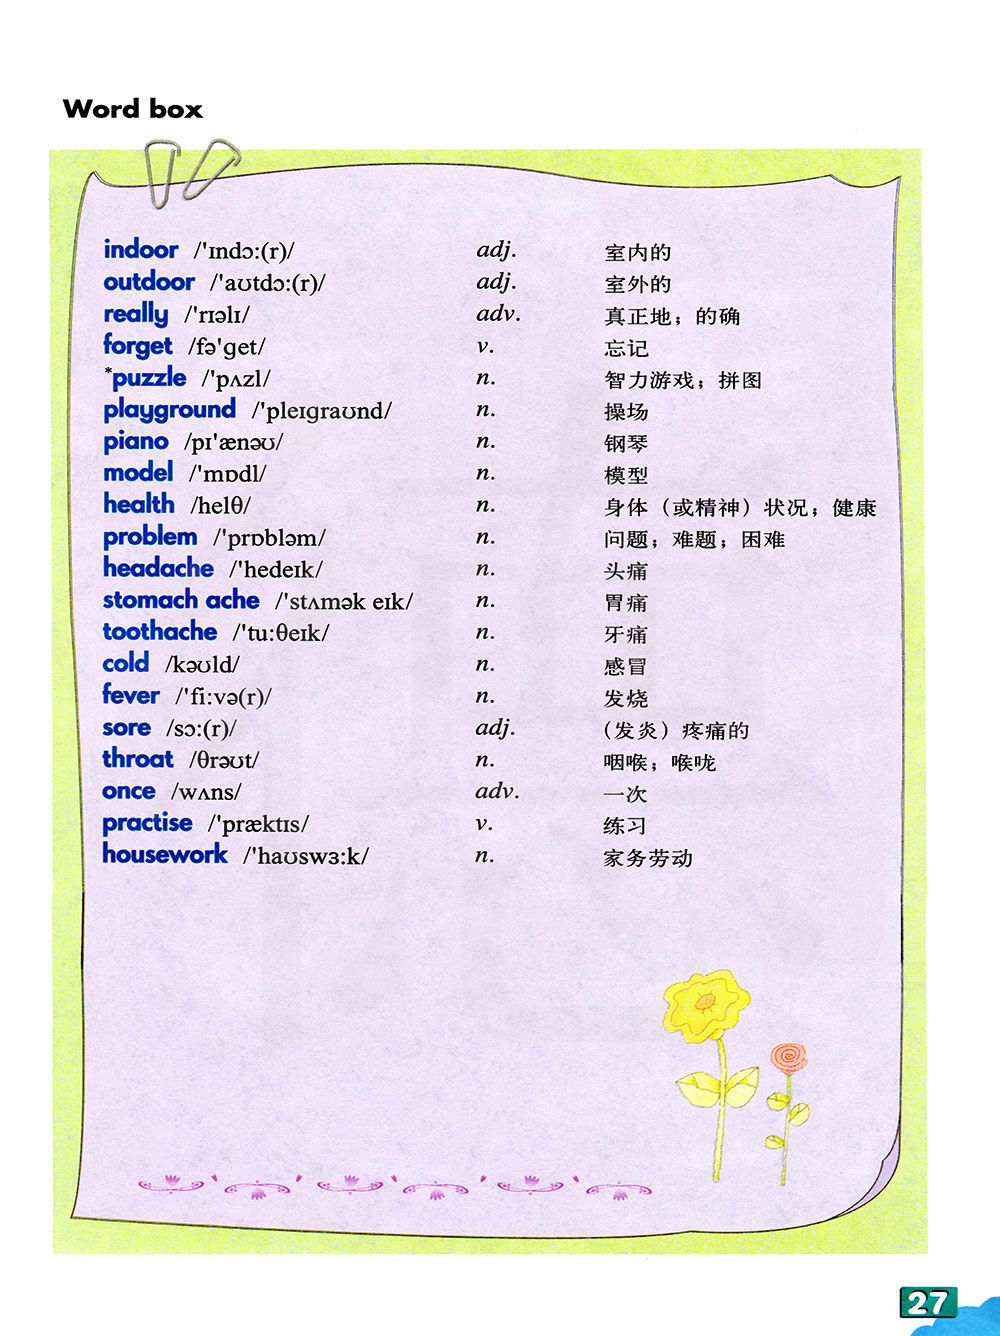 Word box
indoor /'ɪndɔ:(r)/ adj. 室内的
outdoor /'aʊtdɔ:(r)/ adj. 室外的
really /'rɪəlɪ/ adv. 真正地；的确
forget /fə'get/ v. 忘记
*puzzle /'pʌzl/ n. 智力游戏；拼图
playground /'pleɪgraʊnd/ n. 操场
piano /pɪ'ænəʊ/ n. 钢琴
model /'mɒdl/ n. 模型
health /helθ/ n. 身体（或精神）状况；健康
problem /'prɒbləm/ n. 问题；难题；困难
headache /'hedeɪk/ n. 头痛
stomach ache /'stʌmək eɪk/ n. 胃痛
toothache /'tu:θeɪk/ n. 牙痛
cold /kəʊld/ n. 感冒
fever /'fi:və(r)/ n. 发烧
sore /sɔ:(r)/ adj. （发炎）疼痛的
throat /θrəʊt/ n. 咽喉；喉咙
once /wʌns/ adv. 一次
practise /'præktɪs/ v. 练习
housework /'haʊswɜ:k/ n. 家务劳动
27